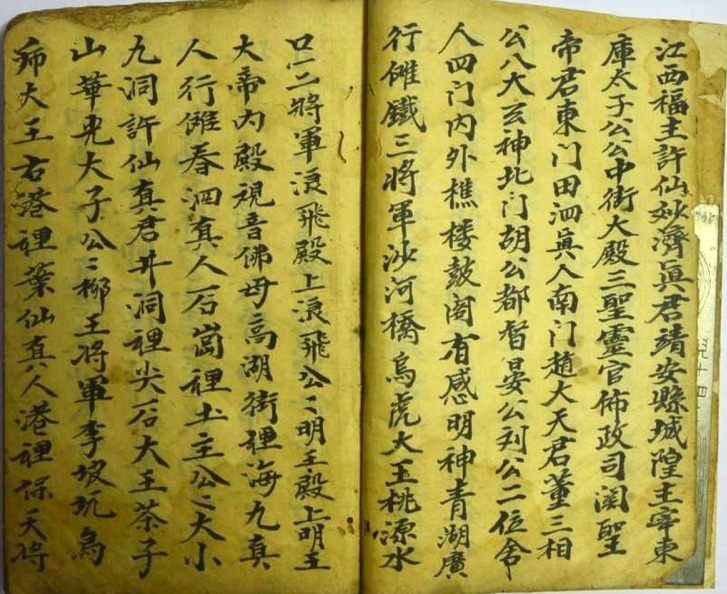 江西福主許仙妙濟眞君靖安縣城隍王宰東
庫太子公公中街大殿三聖靈官佈政司関聖
帝君東门田泗眞人南门趙大天君董三相
公八大玄神北门胡公都督晏公刘公二位舍
人四门内外樵楼鼓阁有感明神青湖廣
行傩鐵三将軍沙河橋烏虎大王桃源水
口一二将軍浪飛殿上浪飛公〻明王殿上明王
大帝内殿視音佛母高湖街裡海九真
人行傩春泗真人石崗裡土主公〻大小
九洞許仙真君井洞裡尖石大王茶子
山華光大子公〻柳王将軍李坡坑烏
大王古港裡葉仙真人港裡保天将
兒十四